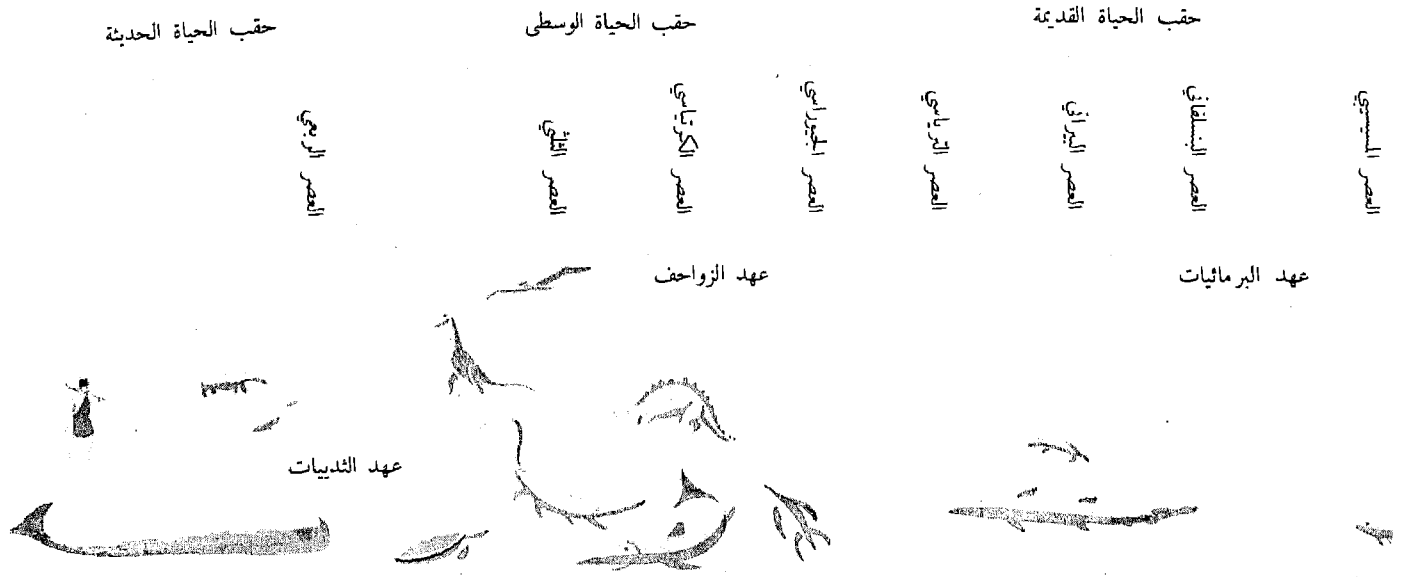 حقب الحياة القديمة
حقب الحياة الوسطى
حقب الحياة الحديثة
العصر المسيسيبي
العصر البنسلفاني
العصر البيراني
العصر الترياسي
العصر الجيوراسي
العصر الكرتياسي
العصر الثلثي
العصر الربعي
عهد البرمائيات
عهد الزواحف
عهد الثدييات